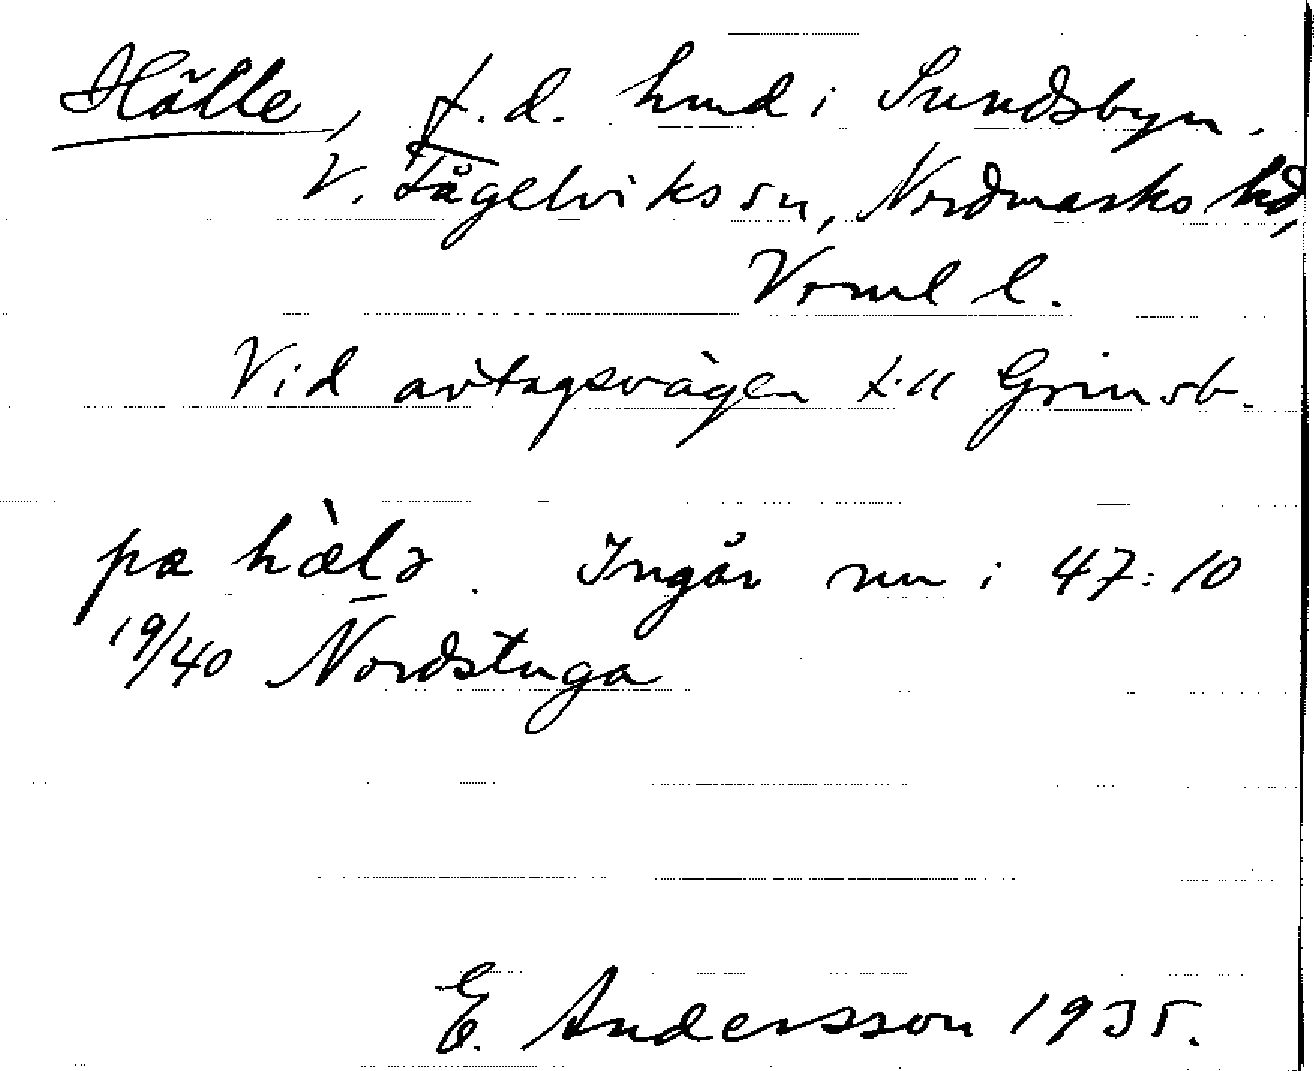 Hälle, f.d. hmd i Sundsbyn.
V. Fågelviks sn, Nordmarks hd,
Verml l.
Vid avtagsvägen till Grinsb.
pa hælə. Ingår nu i 47:10
19/40 Nordstuga
E. Andersson 1935.